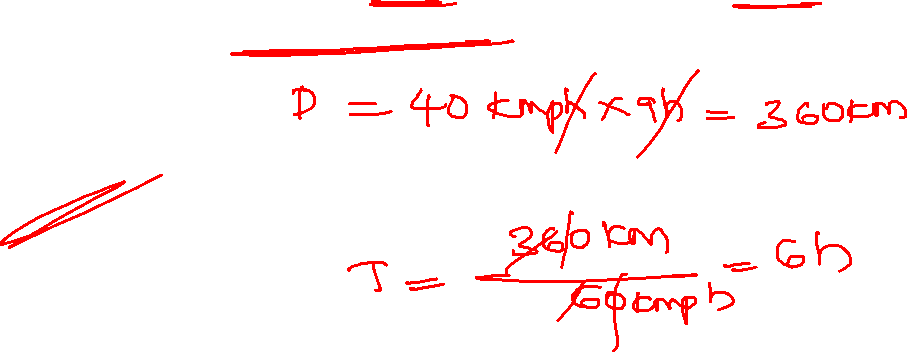 D = 40 kmph x 9h = 360km
T = 360 km / 60 kmph = 6h